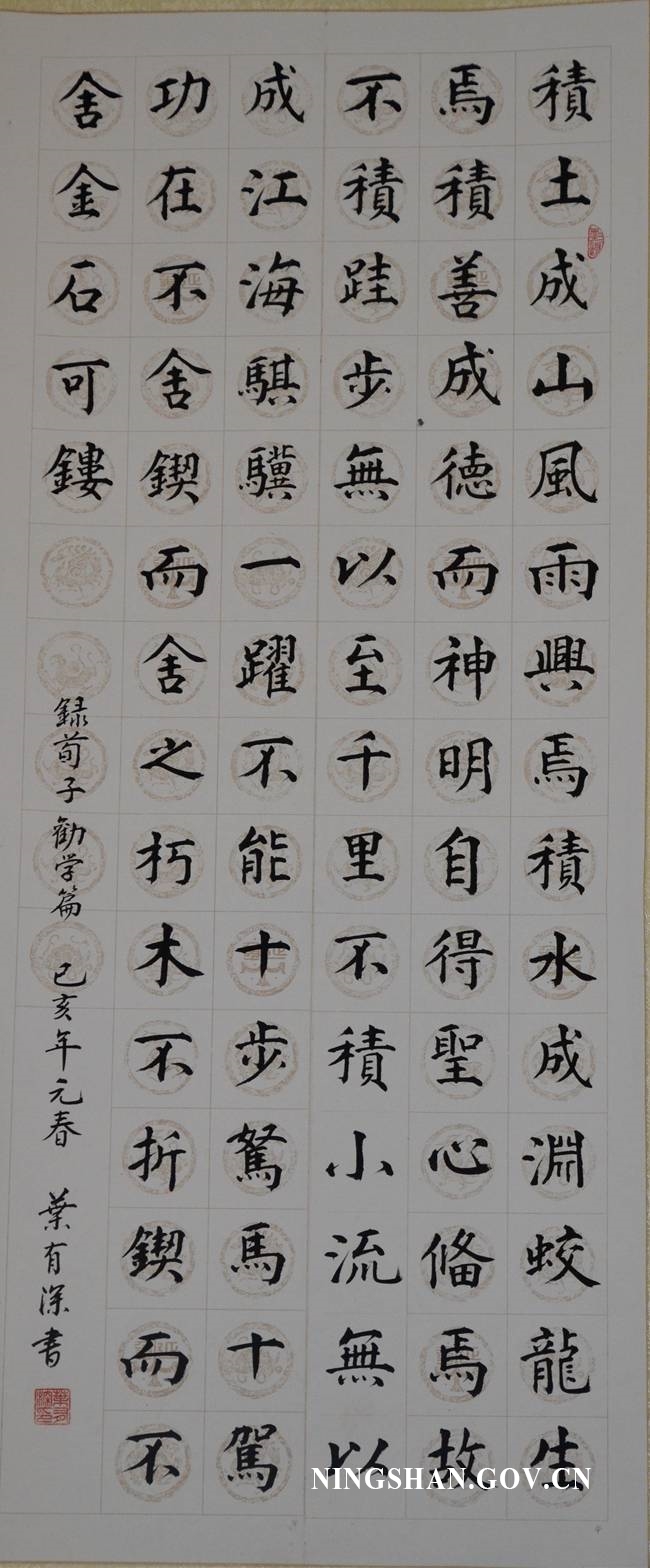 積土成山風雨興焉積水成淵蛟龍生
焉積善成德而神明自得聖心俻焉故
不積跬步無以至千里不積小流無以
成江海騏驥一躍不能十步駑馬十駕
功在不舍鍥而舍之朽木不折鍥而不
舍金石可鏤
録荀子勸学篇 己亥年元春 葉有深書
NINGSHAN.GOV.CN